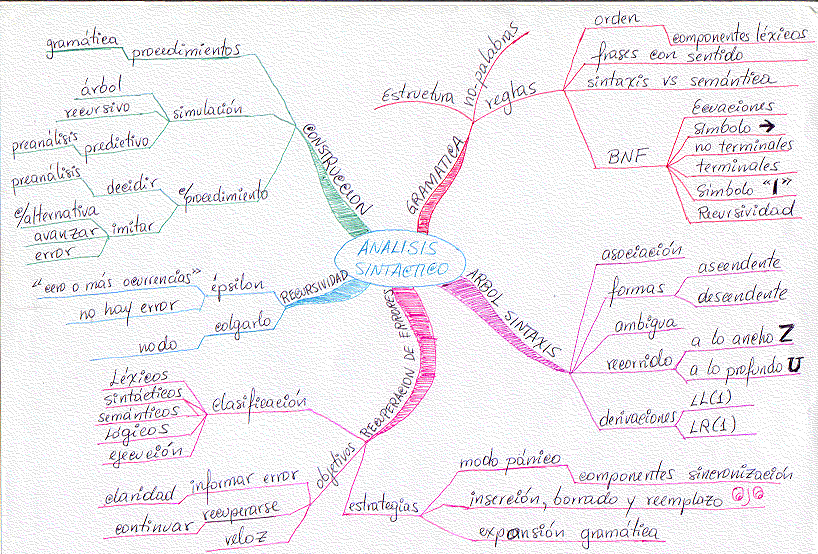 ANALISIS
SINTACTICO
GRAMATICA
Estructura
no-palabras
reglas
orden
componentes léxicos
frases con sentido
sintaxis vs semántica
BNF
Ecuaciones
símbolo →
no terminales
terminales
Símbolo "|"
Recursividad
ARBOL SINTAXIS
asociación
formas
ascendente
descendente
ambigua
recorrido
a lo ancho Z
a lo profundo U
derivaciones
LL(1)
LR(1)
RECUPERACION DE ERRORES
estrategias
modo pánico
componentes sincronización
inserción, borrado y reemplazo ojo
expansión gramática
objetivos
informar error
claridad
recuperarse
continuar
veloz
clasificación
Léxicos
sintácticos
semánticos
Lógicos
ejecución
RECURSIVIDAD
épsilon
"cero o más ocurrencias"
no hay error
colgarlo
nodo
CONSTRUCCION
procedimientos
gramática
simulación
árbol
recursivo
predictivo
preanálisis
c/procedimiento
decidir
preanálisis
imitar
c/alternativa
avanzar
error